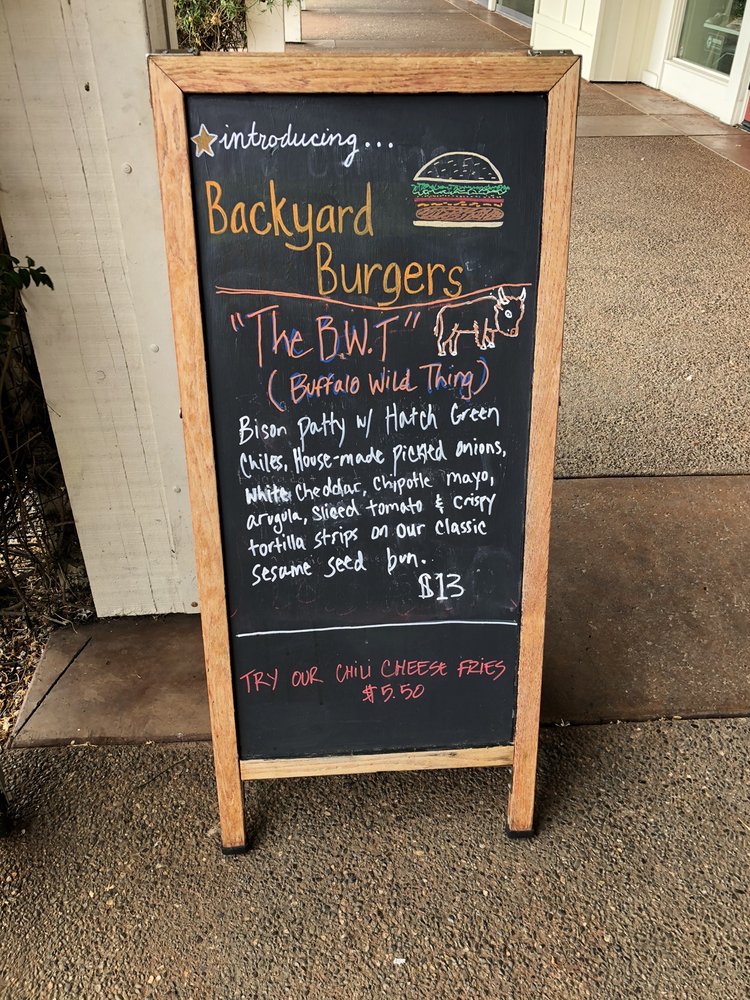 introducing...
Backyard
Burgers
"The B.W.T"
(Buffalo Wild Thing)
Bison Patty w/ Hatch Green
Chiles, House-made pickled onions,
white cheddar, chipotle mayo,
arugula, sliced tomato & crispy
tortilla strips on our classic
sesame seed bun.
$13
TRY OUR CHILI CHEESE FRIES
$5.50